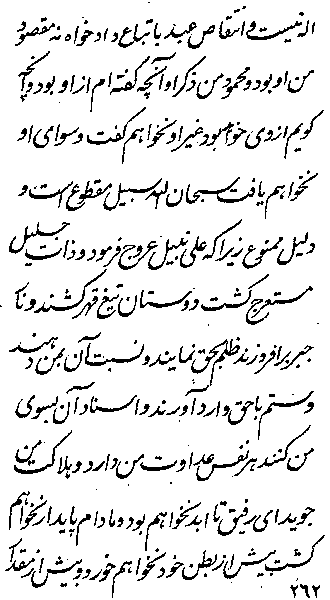 اله نیست و انتقاص عبد باتباع داد خواه نه مقصود
من او بود و محمود من ذکر او آنچه گفته ام از او بود و آنچه
گویم از وی خواهد بود غیر او نخواهم گفت و سوای او
نخواهم یافت سبحان الله سبیل مقطوع است و
دلیل ممنوع زیرا که علی نبیل عروج فرمود و ذات جلیل
مستعرج گشت دوستان تیغ قهر کشند و نار
جبر برافروزند ظلم بحق نمایند و نسبت آن بمن دهند
و ستم باحق وارد آورند و اسناد آن بسوی
من کنند هر نفس عداوت من دارد و هلاکت من
جوید ای رفیق تا ابد نخواهم بود و مادام پایدار نخواهم
گشت بیش از بطن خود نخواهم خورد و بیش از مقدار
۲۶۲